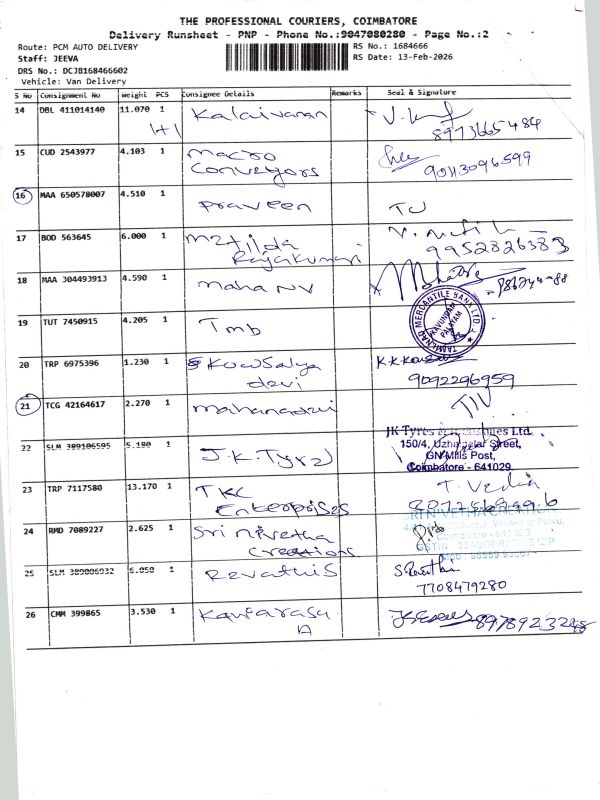 THE PROFESSIONAL COURIERS, COIMBATORE
Delivery Runsheet - PNP - Phone No.:9047080280 - Page No.:2
Route: PCM AUTO DELIVERY
RS No.: 1684666
Staff: JEEVA
RS Date: 13-Feb-2026
DRS No.: DCJB168466602
Vehicle: Van Delivery
S No Consignment No Weight PCS Consignee Details Remarks Seal & Signature
14 DBL 411014140 11.070 1 Kalaivanan
8973665484
15 CUD 2543977 4.103 1 Macro
Conveyors
9043096599
16 MAA 650578007 4.510 1 Praveen
17 BOD 563645 6.000 1 Matilda
Rajakumari
9952826383
18 MAA 304493913 4.590 1 Maha NV
19 TUT 7450915 4.205 1 Tmb
TAMILNAD MERCANTILE BANK LTD.
KAVUNDAM
PALAYAM
20 TRP 6975396 1.230 1 Kowsalya
devi
9092296959
21 TCG 42164617 2.270 1 Mahanadevi
22 SLM 389106595 5.180 1 J.K.Tyre
JK Tyres & Industries Ltd.
150/4, Uzhapalar Street,
GN Mills Post,
Coimbatore - 641029
23 TRP 7117580 13.170 1 TKC
Enterprises
24 RMD 7089227 2.625 1 Sri Nivetha
Creations
25 SLM 389006932 6.050 1 Revathi S
7708479280
26 CMM 399865 3.530 1 Kaviarasu
A